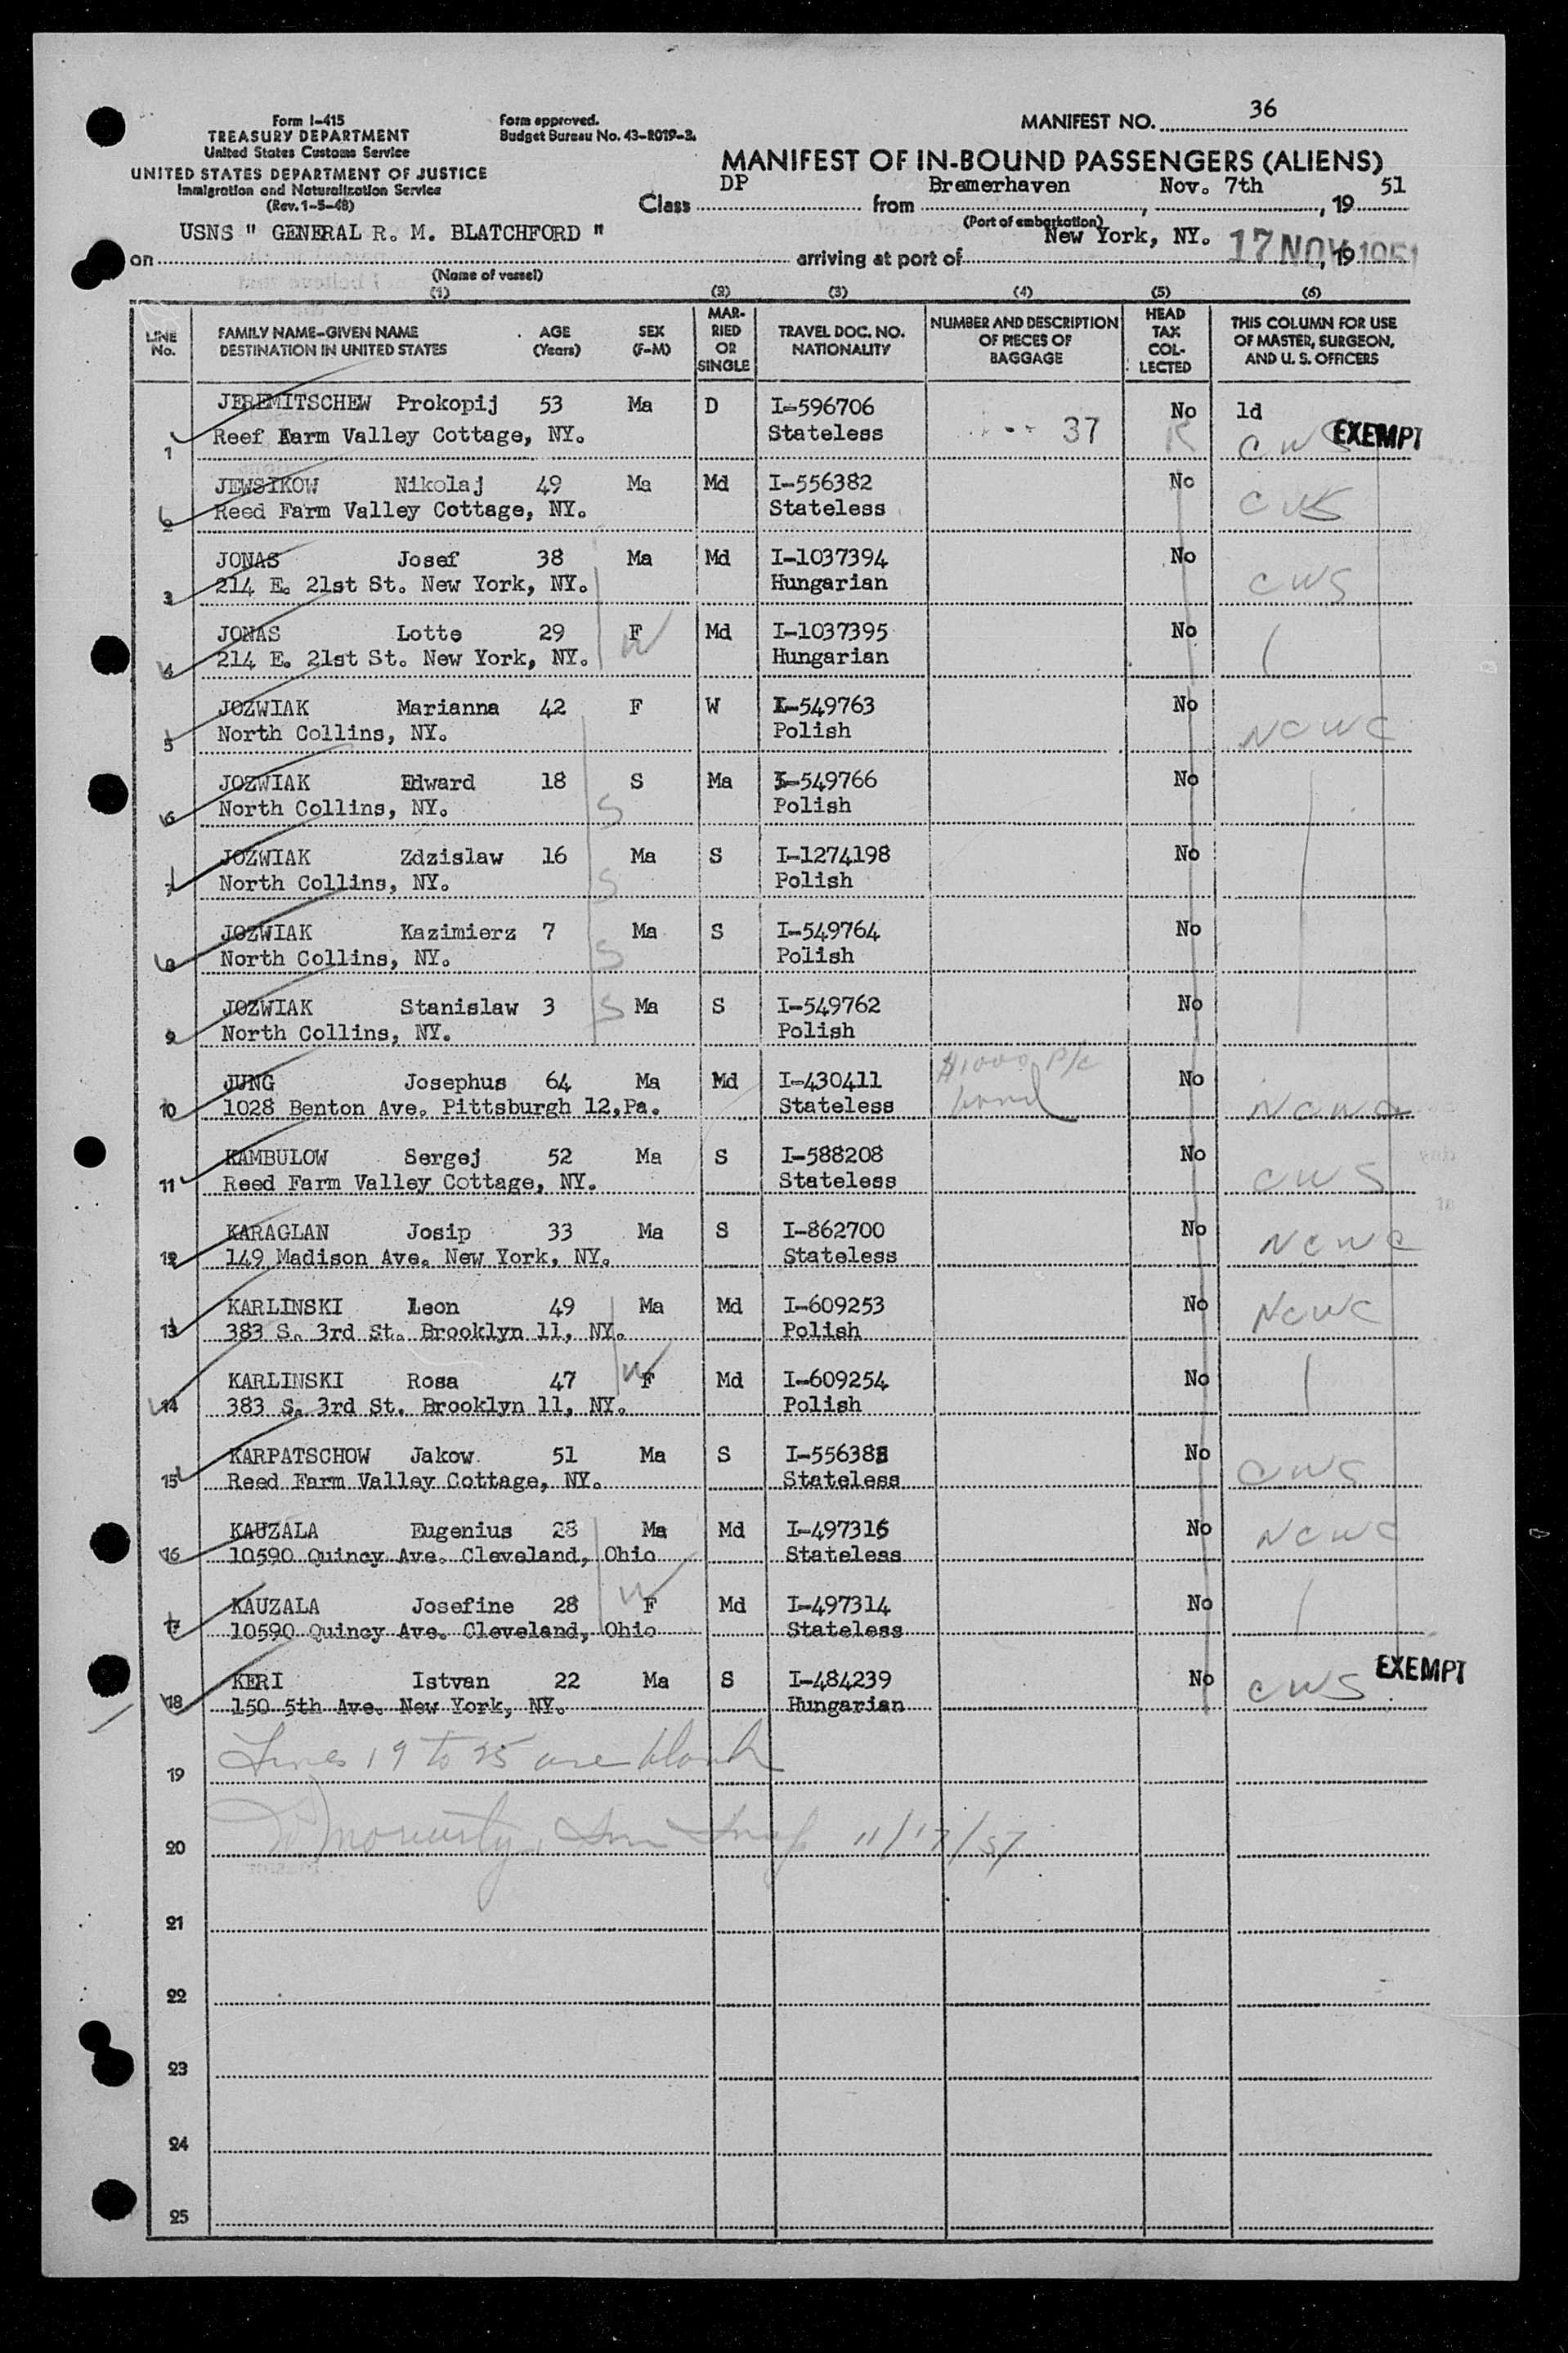 MANIFEST NO. 36
Form I-415
TREASURY DEPARTMENT
United States Customs Service
UNITED STATES DEPARTMENT OF JUSTICE
Immigration and Naturalization Service
(Rev. 1-5-48)
Form approved.
Budget Bureau No. 43-R019-3.
MANIFEST OF IN-BOUND PASSENGERS (ALIENS)
Class DP from Bremerhaven, Nov. 7th, 19 51
(Port of embarkation)
on USNS " GENERAL R. M. BLATCHFORD " arriving at port of New York, NY. 17 NOV 1951, 19
(Name of vessel)
(1) (2) (3) (4) (5) (6)
LINE No. FAMILY NAME-GIVEN NAME DESTINATION IN UNITED STATES AGE (Years) SEX (F-M) MARRIED OR SINGLE TRAVEL DOC. NO. NATIONALITY NUMBER AND DESCRIPTION OF PIECES OF BAGGAGE HEAD TAX COLLECTED THIS COLUMN FOR USE OF MASTER, SURGEON, AND U. S. OFFICERS
1 JEREMITSCHEW Prokopij 53 Ma D I-596706 37 No 1d CWS EXEMPT
Reef Farm Valley Cottage, NY. Stateless
2 JEWSIKOW Nikolaj 49 Ma Md I-556382 No CWS
Reed Farm Valley Cottage, NY. Stateless
3 JONAS Josef 38 Ma Md I-1037394 No CWS
214 E. 21st St. New York, NY. Hungarian
4 JONAS Lotte 29 F W Md I-1037395 No
214 E. 21st St. New York, NY. Hungarian
5 JOZWIAK Marianna 42 F W I-549763 No NCWC
North Collins, NY. Polish
6 JOZWIAK Edward 18 S Ma I-549766 No
North Collins, NY. S Polish
7 JOZWIAK Zdzislaw 16 Ma S I-1274198 No
North Collins, NY. S Polish
8 JOZWIAK Kazimierz 7 Ma S I-549764 No
North Collins, NY. S Polish
9 JOZWIAK Stanislaw 3 S Ma S I-549762 No
North Collins, NY. Polish
10 JUNG Josephus 64 Ma Md I-430411 $1000 P/C bond No NCWC
1028 Benton Ave. Pittsburgh 12, Pa. Stateless
11 KAMBULOW Sergej 52 Ma S I-588208 No CWS
Reed Farm Valley Cottage, NY. Stateless
12 KARAGLAN Josip 33 Ma S I-862700 No NCWC
149 Madison Ave. New York, NY. Stateless
13 KARLINSKI Leon 49 Ma Md I-609253 No NCWC
383 S. 3rd St. Brooklyn 11, NY. Polish
14 KARLINSKI Rosa 47 W F Md I-609254 No
383 S. 3rd St. Brooklyn 11, NY. Polish
15 KARPATSCHOW Jakow 51 Ma S I-556388 No CWS
Reed Farm Valley Cottage, NY. Stateless
16 KAUZALA Eugenius 28 Ma Md I-497315 No NCWC
10590 Quincy Ave. Cleveland, Ohio Stateless
17 KAUZALA Josefine 28 W F Md I-497314 No
10590 Quincy Ave. Cleveland, Ohio Stateless
18 KERI Istvan 22 Ma S I-484239 No CWS EXEMPT
150 5th Ave. New York, NY. Hungarian
19 Lines 19 to 25 are blank
20 Moriarty 11/17/51
21
22
23
24
25